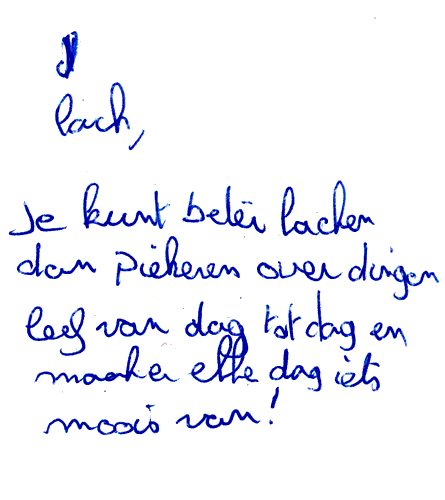 Lach,
Je kunt beter lachen
dan piekeren over dingen
leef van dag tot dag en
maak er elke dag iets
moois van!